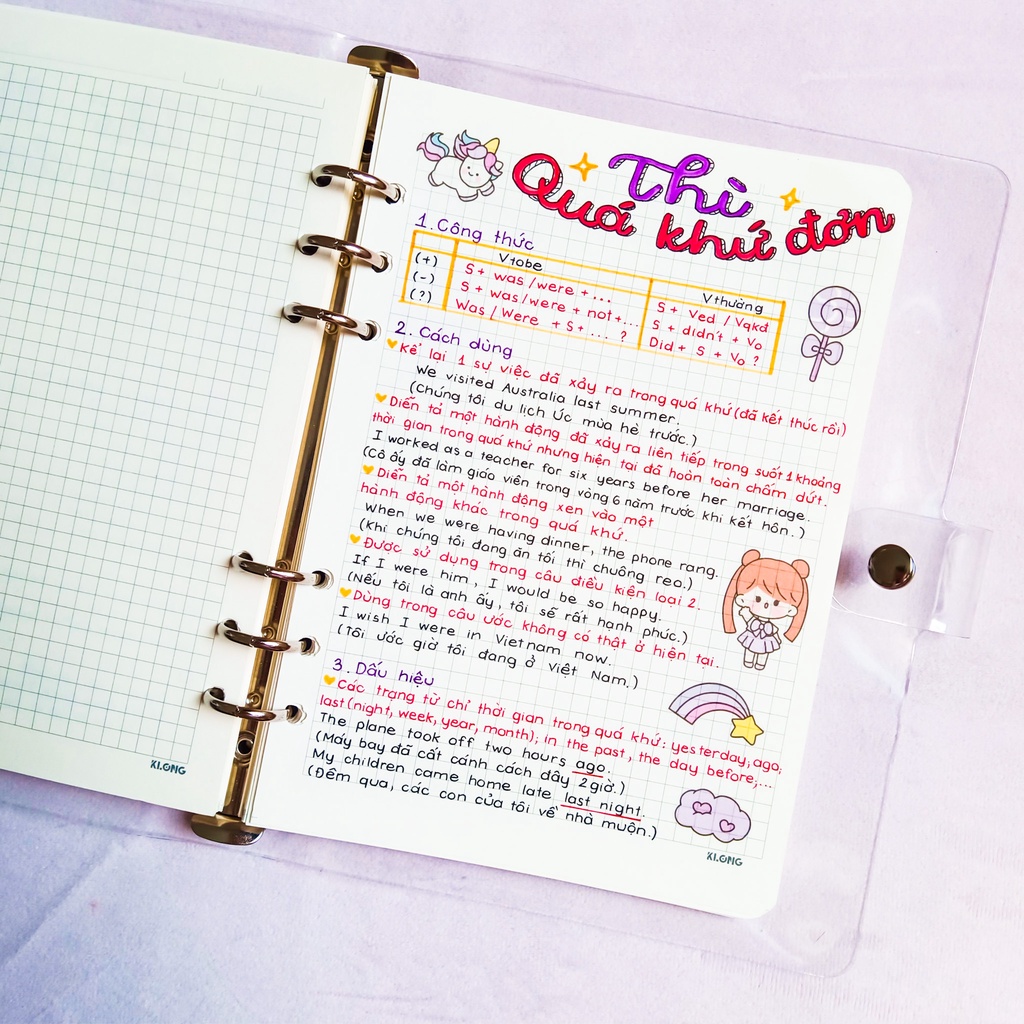 Thì
Quá khứ đơn
1. Công thức
Vtobe Vthường
(+) S + was /were + ... S + Ved / Vqkđ
(-) S + was/were + not +... S + didn't + Vo
(?) Was / Were + S + ... ? Did + S + Vo ?
2. Cách dùng
Kể lại 1 sự việc đã xảy ra trong quá khứ (đã kết thúc rồi)
We visited Australia last summer.
(Chúng tôi du lịch Úc mùa hè trước.)
Diễn tả một hành động đã xảy ra liên tiếp trong suốt 1 khoảng
thời gian trong quá khứ nhưng hiện tại đã hoàn toàn chấm dứt.
I worked as a teacher for six years before her marriage.
(Cô ấy đã làm giáo viên trong vòng 6 năm trước khi kết hôn.)
Diễn tả một hành động xen vào một
hành động khác trong quá khứ.
When we were having dinner, the phone rang.
(Khi chúng tôi đang ăn tối thì chuông reo.)
Được sử dụng trong câu điều kiện loại 2.
If I were him, I would be so happy.
(Nếu tôi là anh ấy, tôi sẽ rất hạnh phúc.)
Dùng trong câu ước không có thật ở hiện tại.
I wish I were in Vietnam now.
(Tôi ước giờ tôi đang ở Việt Nam.)
3. Dấu hiệu
Các trạng từ chỉ thời gian trong quá khứ: yesterday; ago;
last (night, week, year, month); in the past, the day before;...
The plane took off two hours ago.
(Máy bay đã cất cánh cách đây 2 giờ.)
My children came home late last night.
(Đêm qua, các con của tôi về nhà muộn.)
KLONG
KLONG